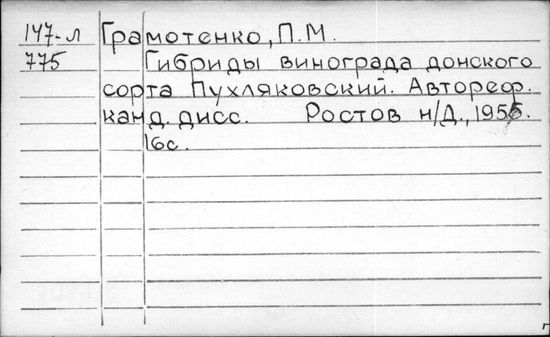 147-л Грамотенко, П.М.
775 Гибриды винограда донского
сорта Пухляковский. Автореф.
канд. дисс. Ростов н/Д., 1955.
16с.